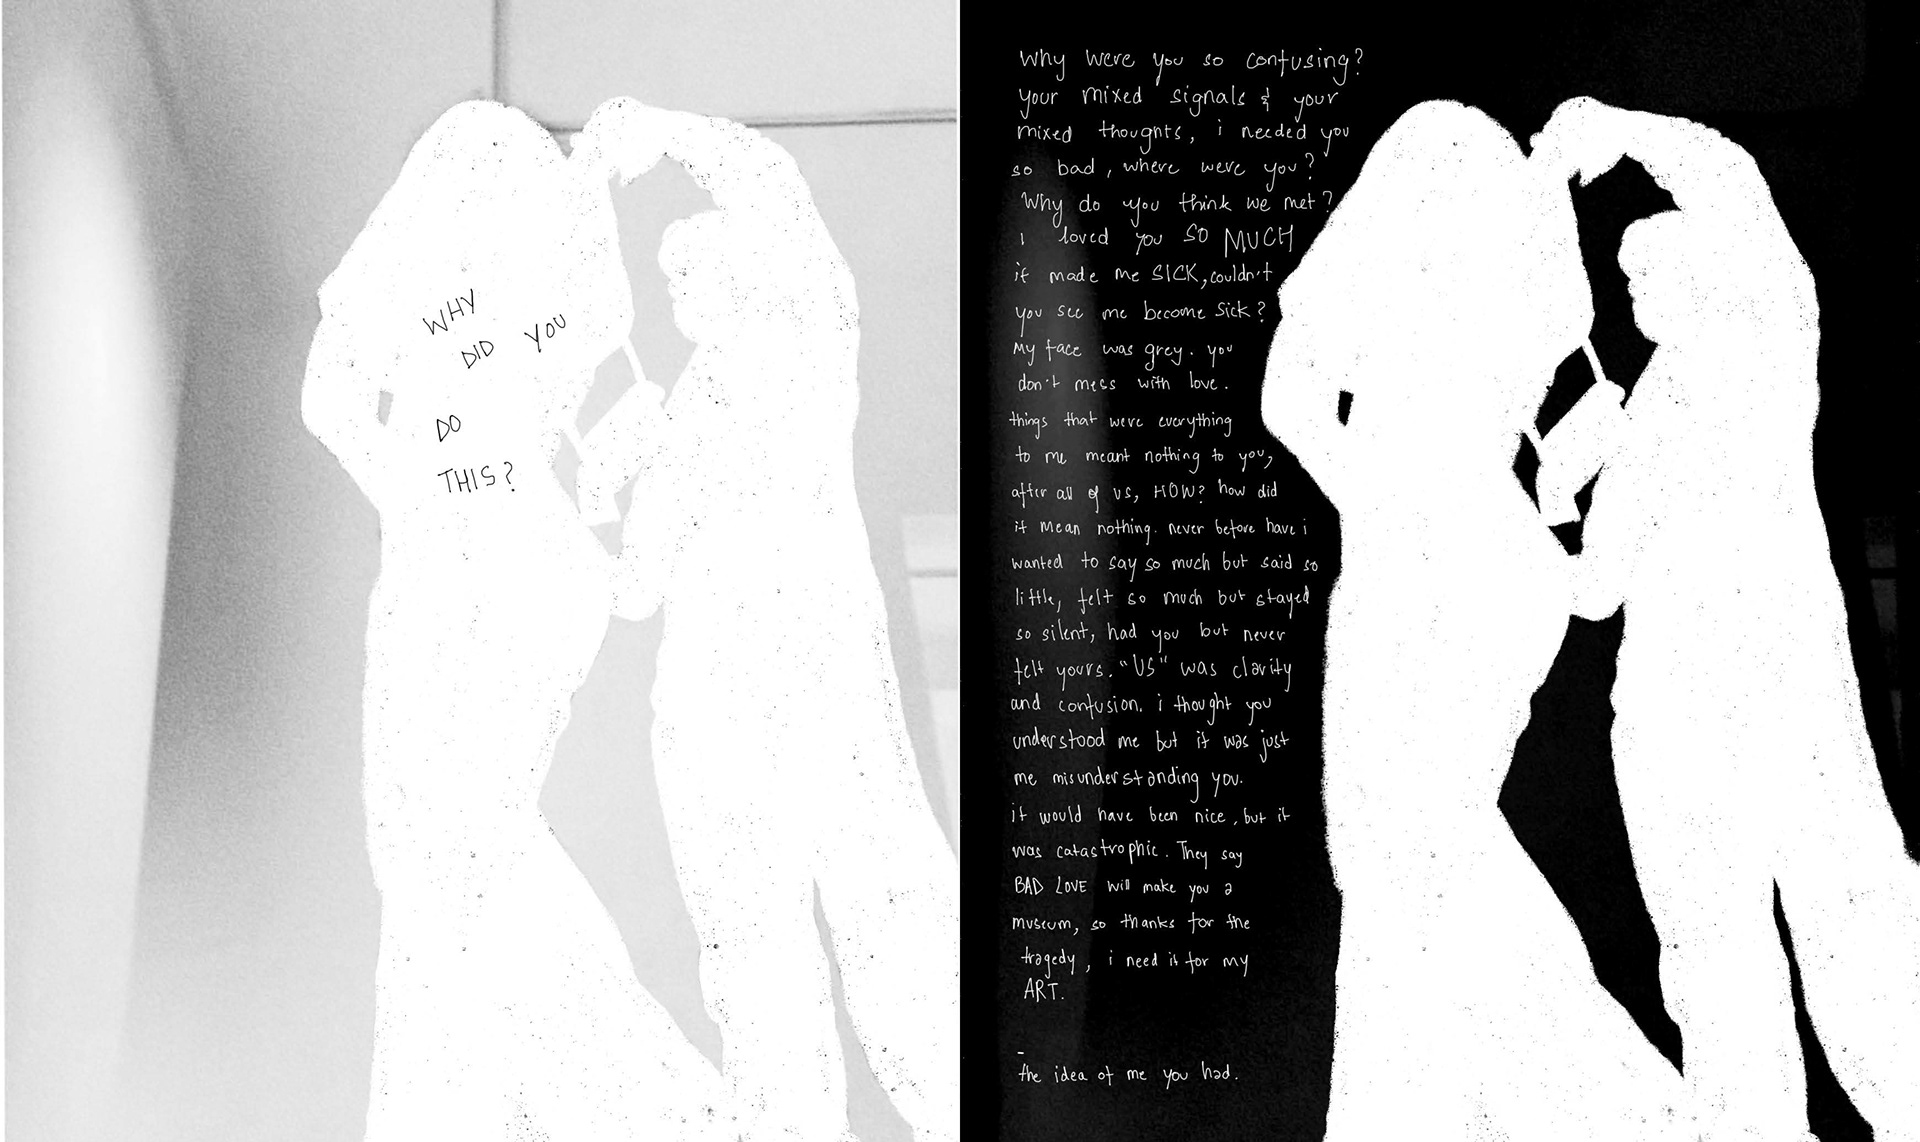 WHY
DID YOU
DO
THIS?
Why were you so confusing?
your mixed signals & your
mixed thoughts, i needed you
so bad, where were you?
Why do you think we met?
i loved you SO MUCH
it made me SICK, couldn't
you see me become sick?
My face was grey. you
don't mess with love.
things that were everything
to me meant nothing to you,
after all of us, HOW? how did
it mean nothing. never before have i
wanted to say so much but said so
little, felt so much but stayed
so silent, had you but never
felt yours. "US" was clarity
and confusion. i thought you
understood me but it was just
me misunderstanding you.
it would have been nice, but it
was catastrophic. They say
BAD LOVE will make you a
museum, so thanks for the
tragedy, i need it for my
ART.
-
the idea of me you had.